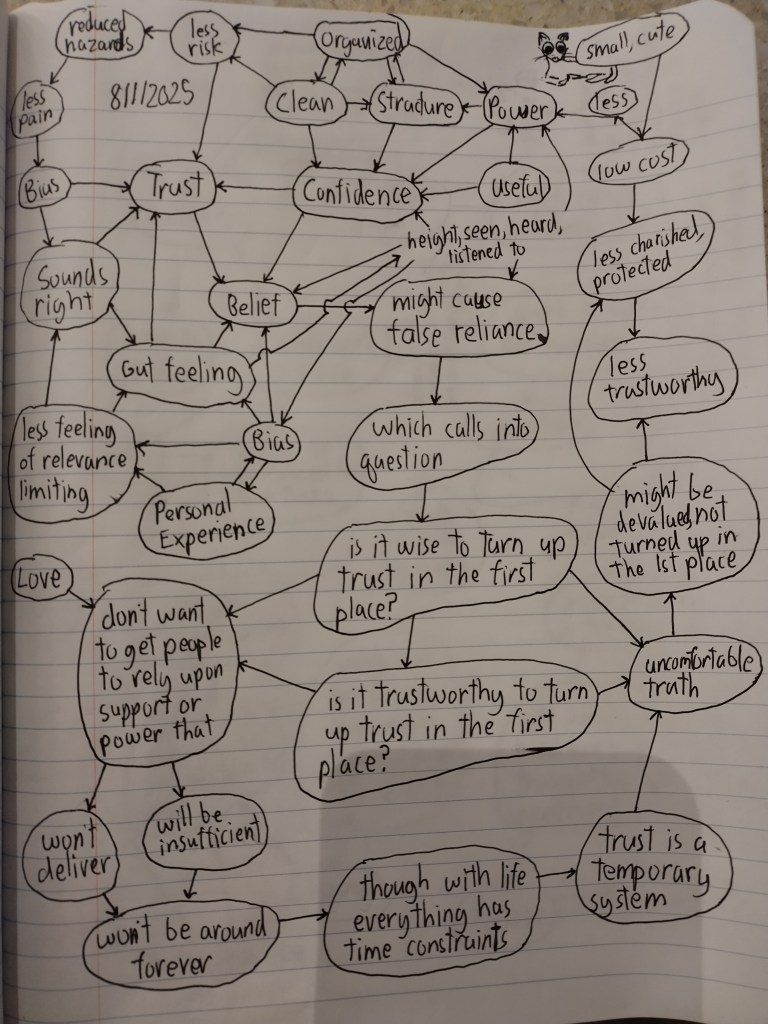 reduced
hazards
less
risk
Organized
small, cute
less
pain
8/1/2025
Clean
Stradure
Power
less
low cost
Bias
Trust
Confidence
useful
height, seen, heard,
listened to
less charished,
protected
Sounds
right
Belief
might cause
false reliance
less
trustworthy
Gut feeling
less feeling
of relevance
limiting
Bias
which calls into
question
Personal
Experience
might be
devalued, not
turned up in
the 1st place
is it wise to turn up
trust in the first
place?
Love
don't want
to get people
to rely upon
support or
power that
uncomfortable
truth
is it trustworthy to turn
up trust in the first
place?
won't
deliver
will be
insufficient
though with life
everything has
time constraints
trust is a
temporary
system
won't be around
forever